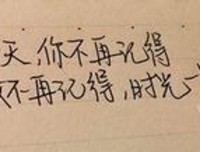 天,你不再记得
不再记得,时光